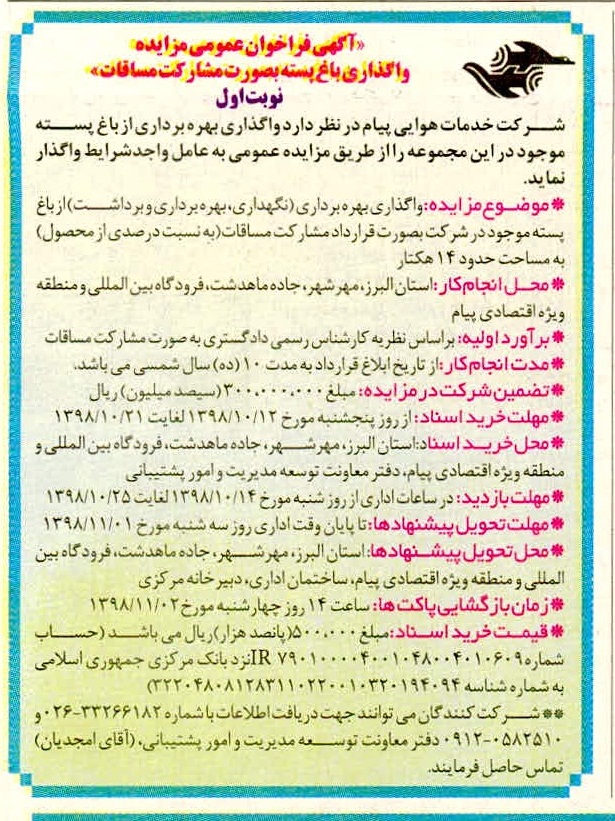 «آگهی فراخوان عمومی مزایده
واگذاری باغ پسته بصورت مشارکت مساقات»
نوبت اول
شرکت خدمات هوایی پیام در نظر دارد واگذاری بهره برداری از باغ پسته
موجود در این مجموعه را از طریق مزایده عمومی به عامل واجد شرایط واگذار
نماید.
*موضوع مزایده: واگذاری بهره برداری (نگهداری، بهره برداری و برداشت) از باغ
پسته موجود در شرکت بصورت قرارداد مشارکت مساقات (به نسبت درصدی از محصول)
به مساحت حدود ۱۴ هکتار
*محل انجام کار: استان البرز، مهرشهر، جاده ماهدشت، فرودگاه بین المللی و منطقه
ویژه اقتصادی پیام
*برآورد اولیه: براساس نظریه کارشناس رسمی دادگستری به صورت مشارکت مساقات
*مدت انجام کار: از تاریخ ابلاغ قرارداد به مدت ۱۰ (ده) سال شمسی می باشد.
*تضمین شرکت در مزایده: مبلغ ۳۰۰،۰۰۰،۰۰۰ (سیصد میلیون) ریال
*مهلت خرید اسناد: از روز پنجشنبه مورخ ۱۳۹۸/۱۰/۱۲ لغایت ۱۳۹۸/۱۰/۲۱
*محل خرید اسناد: استان البرز، مهرشهر، جاده ماهدشت، فرودگاه بین المللی و
منطقه ویژه اقتصادی پیام، دفتر معاونت توسعه مدیریت و امور پشتیبانی
*مهلت بازدید: در ساعات اداری از روز شنبه مورخ ۱۳۹۸/۱۰/۱۴ لغایت ۱۳۹۸/۱۰/۲۵
*مهلت تحویل پیشنهادها: تا پایان وقت اداری روز سه شنبه مورخ ۱۳۹۸/۱۱/۰۱
*محل تحویل پیشنهادها: استان البرز، مهرشهر، جاده ماهدشت، فرودگاه بین
المللی و منطقه ویژه اقتصادی پیام، ساختمان اداری، دبیرخانه مرکزی
*زمان بازگشایی پاکت ها: ساعت ۱۴ روز چهارشنبه مورخ ۱۳۹۸/۱۱/۰۲
*قیمت خرید اسناد: مبلغ ۵۰۰،۰۰۰ (پانصد هزار) ریال می باشد (حساب
شماره IR ۷۹۰۱۰۰۰۰۴۰۰۱۰۴۸۰۰۴۰۱۰۶۰۹ نزد بانک مرکزی جمهوری اسلامی
به شماره شناسه ۳۲۲۰۴۸۰۸۱۲۸۳۱۱۰۲۲۰۰۱۰۳۲۰۱۹۴۰۹۴)
**شرکت کنندگان می توانند جهت دریافت اطلاعات با شماره ۳۳۲۶۶۱۸۲-۰۲۶ و
۰۵۸۲۵۱۰-۰۹۱۲ دفتر معاونت توسعه مدیریت و امور پشتیبانی، (آقای امجدیان)
تماس حاصل فرمایند.